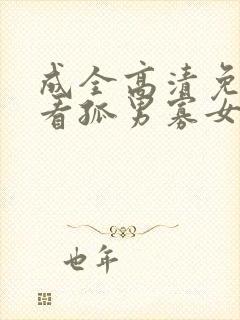 成全高清免
看孤男寡女
也年